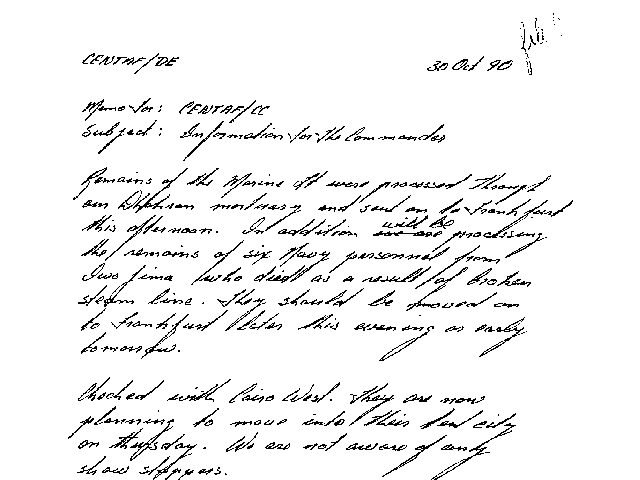 CENTAF/DE 30 Oct 90
Memo for: CENTAF/CC
Subject: Information for the Commander
Remains of the Marine Lt were processed through
our Dhahran mortuary and sent on to Frankfurt
this afternoon. In addition will be processing
the remains of six Navy personnel from
Iwo Jima who died as a result of broken
steam line. They should be moved on
to Frankfurt later this evening or early
tomorrow.
Checked with Cairo West. They are now
planning to move into their tent city
on thursday. We are not aware of any
show stoppers.